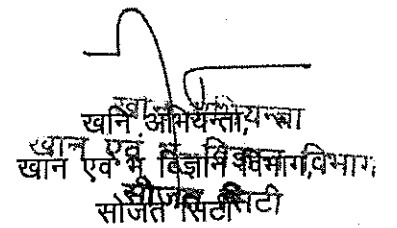 खनि अभियन्ता,
खान एवं भू विज्ञान विभाग,
सोजत सिटी